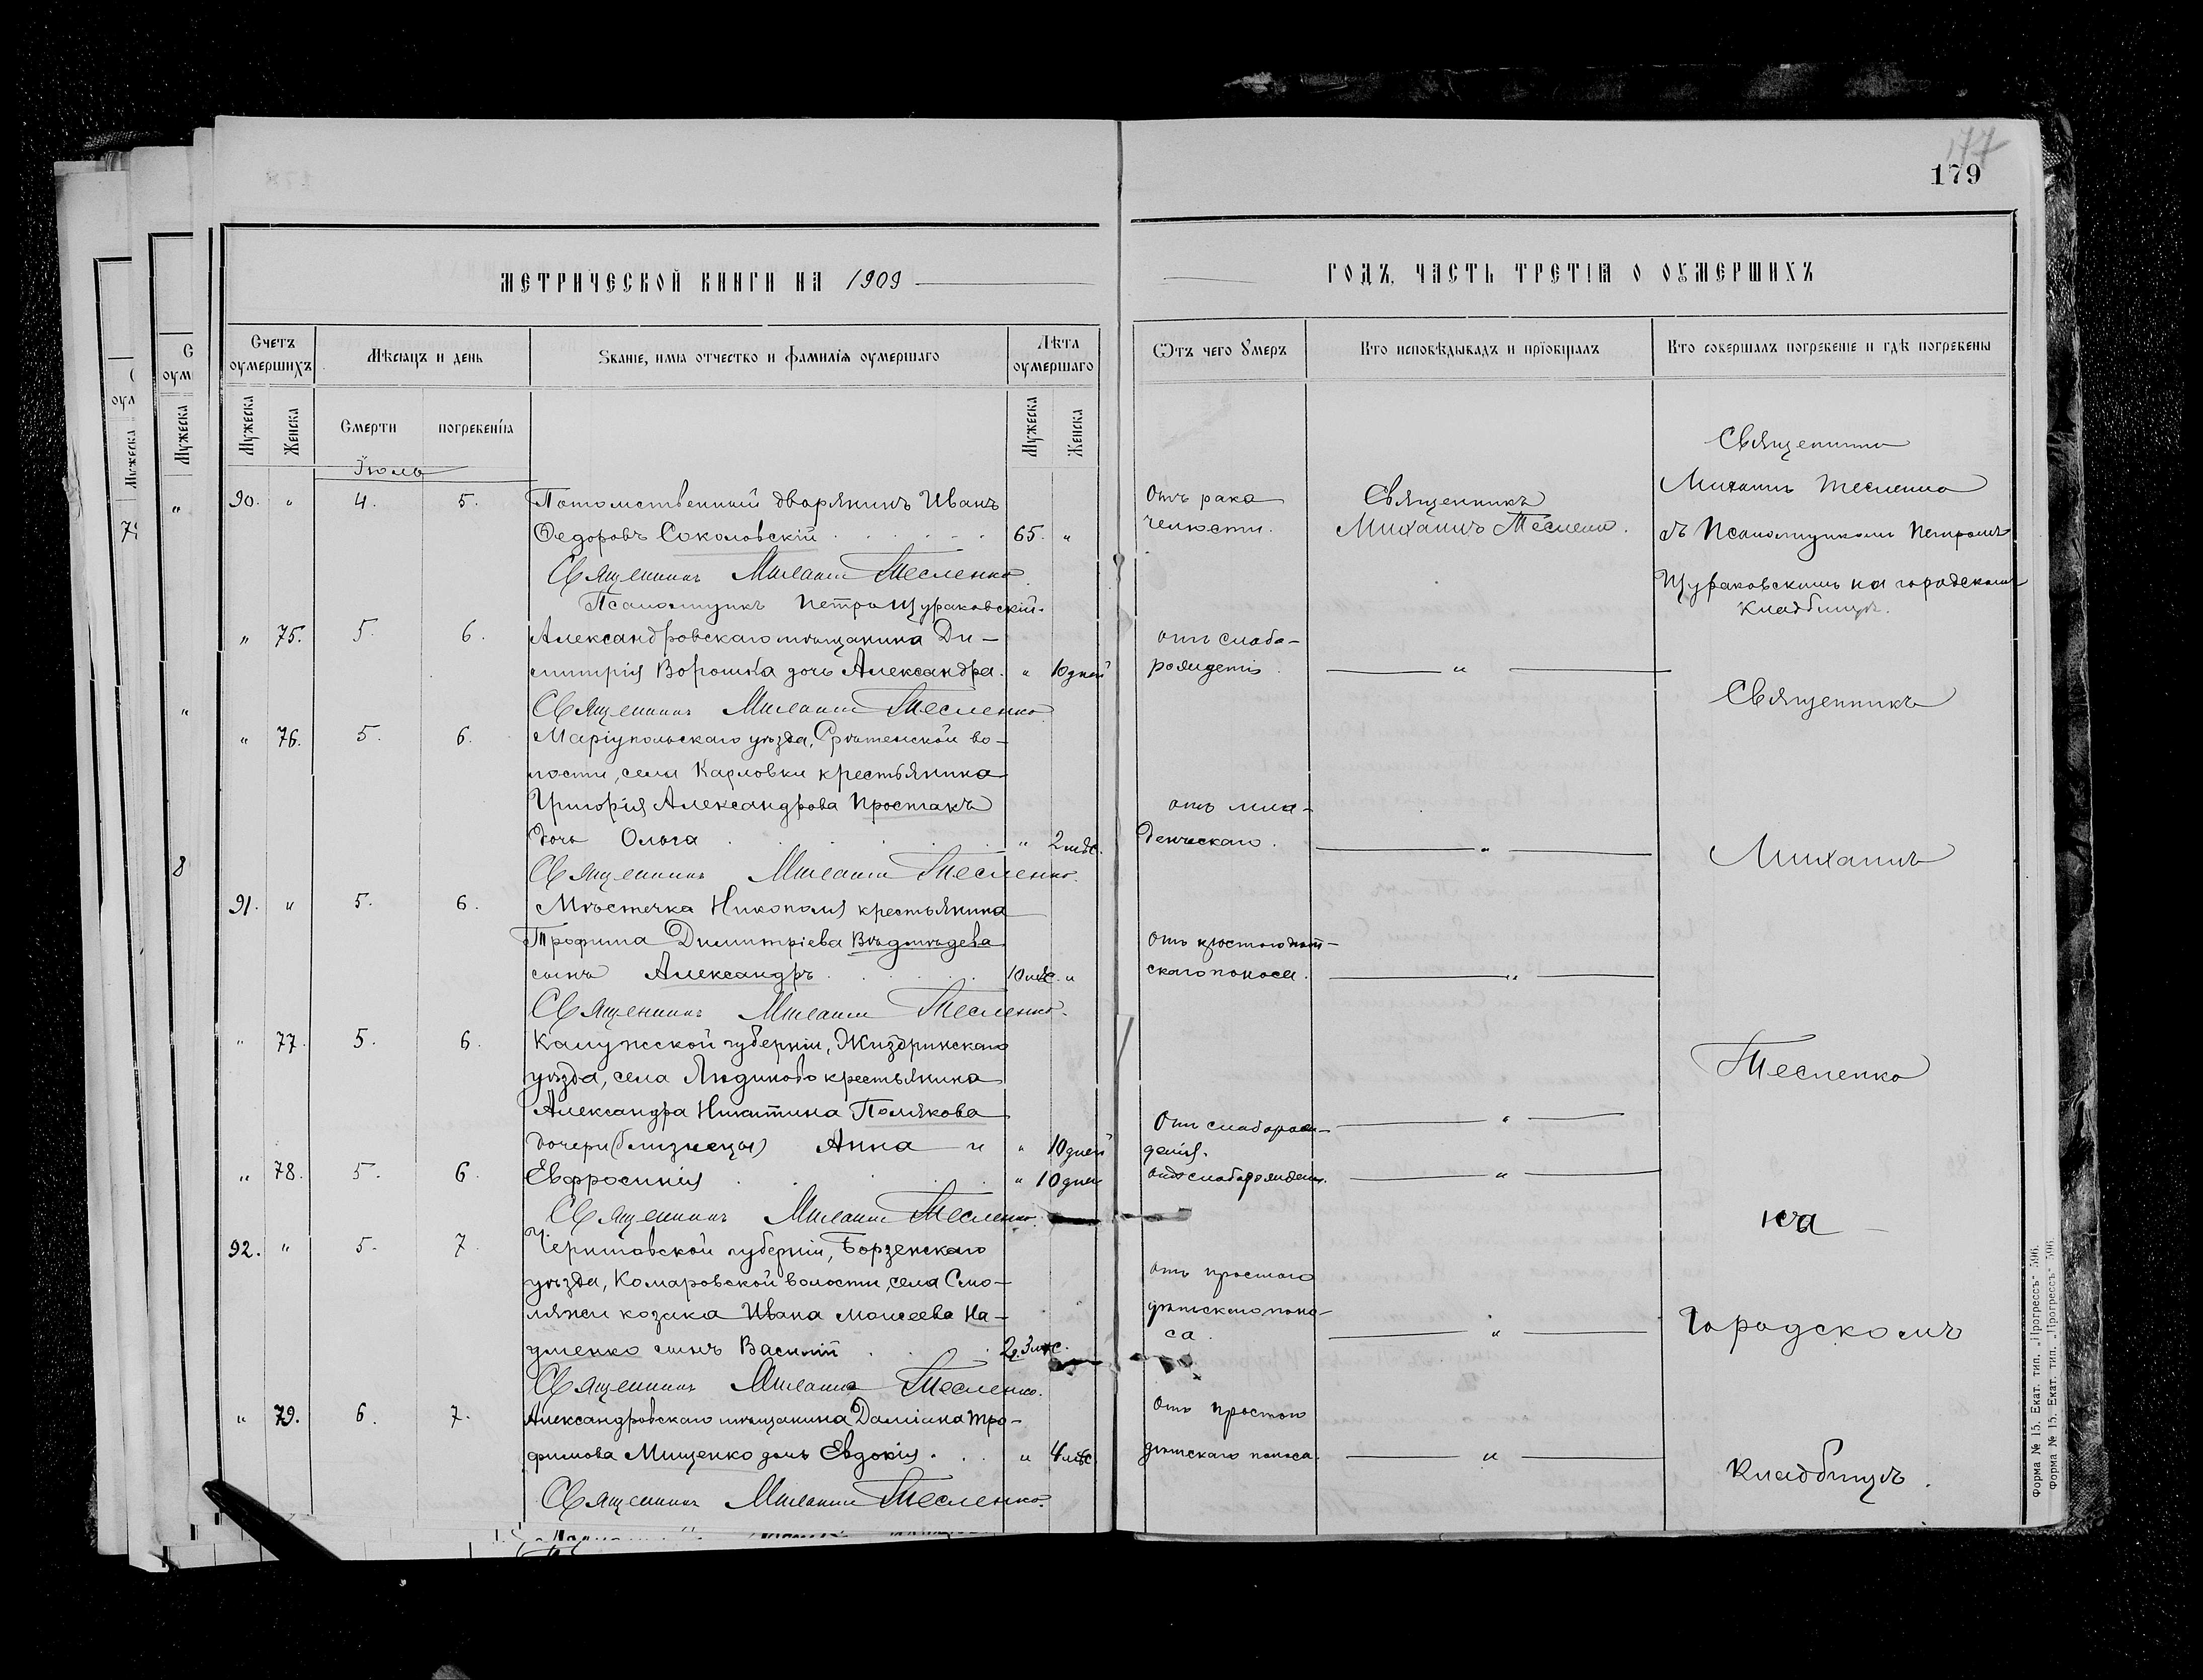 177
179
МЕТРИЧЕСКОЙ КНИГИ НА 1909
ГОДЪ, ЧАСТЬ ТРЕТІЯ О ОУМЕРШИХЪ
Счетъ оумершихъ
Мѣсяцъ и день
Званіе, имя отчество и фамилія оумершаго
Лѣта оумершаго
Ѿтъ чего Умеръ
Кто исповѣдывалъ и пріобщалъ
Кто совершалъ погребеніе и гдѣ погребены
Мужеска
Женска
Смерти
погребенія
Мужеска
Женска
Іюль
90. " 4. 5. Потомственный дворянинъ Иванъ
Ѳедоровъ Соколовскій 65. "
Отъ рака
челюсти.
Священникъ
Михаилъ Тесленко.
Священникъ
Михаилъ Тесленко
съ Псаломщикомъ Петромъ
Щураковскимъ на городскомъ
кладбищѣ.
Священникъ Михаилъ Тесленко
Псаломщикъ Петръ Щураковскій.
" 75. 5. 6. Александровскаго мѣщанина Ди-
митрія Ворошка дочь Александра. " 10 дней
отъ слабо-
рожденія "
Священникъ Михаилъ Тесленко
" 76. 5. 6. Маріупольскаго уѣзда, Срѣтенской во-
лости, села Карловки крестьянина
Григорія Александрова Простакъ
дочь Ольга " 2 мѣс.
отъ мла-
денческаго. "
Священникъ Михаилъ Тесленко.
91. " 5. 6. Мѣстечка Никополя крестьянина
Трофима Димитріева
сынъ Александръ 10 мѣс. "
отъ простого дѣт-
скаго поноса. "
Священникъ Михаилъ Тесленко.
" 77. 5. 6. Калужской губерніи, Жиздринскаго
уѣзда, села Людиново крестьянина
Александра Никитина Полякова
дочери (близнецы) Анна и " 10 дней
Отъ слаборож-
денія. "
" 78. 5. 6. Евфросинія " 10 дней
отъ слаборожденія. "
Священникъ Михаилъ Тесленко.
92. " 5. 7. Черниговской губерніи, Борзенскаго
уѣзда, Комаровской волости, села Смо-
ляжи козака Ивана Моисеева На-
уменко сынъ Василій 2 г. 3 мѣс.
отъ простого
дѣтскаго поно-
са. "
Священникъ Михаилъ Тесленко.
" 79. 6. 7. Александровскаго мѣщанина Даміана Тро-
фимова Мищенко дочь Евдокія. " 4 мѣс.
Отъ простого
дѣтскаго поноса. "
Священникъ Михаилъ Тесленко.
Священникъ
Михаилъ
Тесленко
на
Городскомъ
Кладбищѣ.
Форма № 15. Екат. тип. „Прогрессъ" 596.
Форма № 15. Екат. тип. „Прогрессъ" 596.